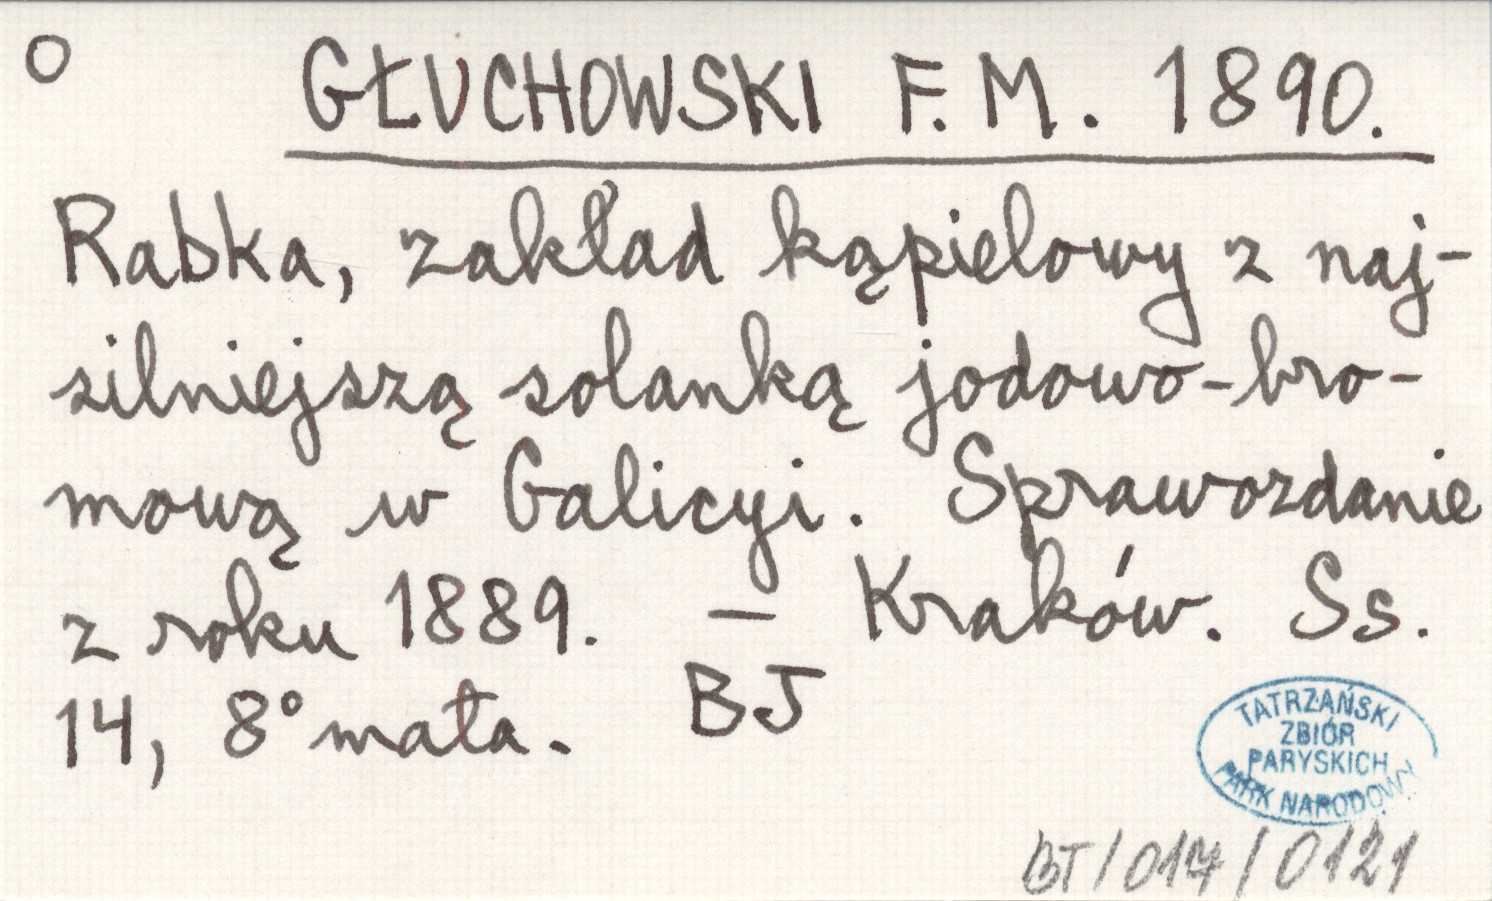 O GŁUCHOWSKI F. M. 1890.
Rabka, zakład kąpielowy z naj-
silniejszą solanką jodowo-bro-
mową w Galicyi. Sprawozdanie
z roku 1889. – Kraków. Ss.
14, 8° mała. BJ
TATRZAŃSKI
ZBIÓR
PARYSKICH
PARK NARODOWY
BT/017/0121